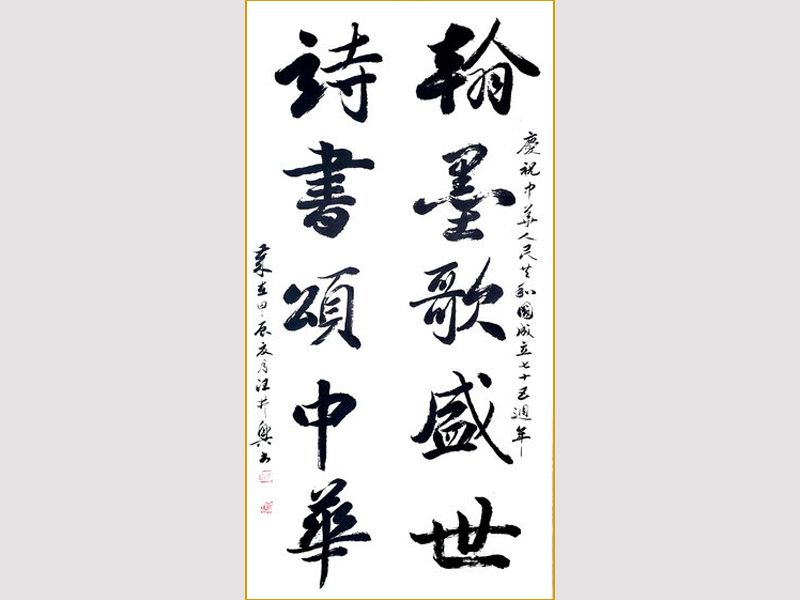 慶祝中華人民共和國成立七十五週年
翰墨歌盛世
詩書頌中華
歲在甲辰夏月汪井興書